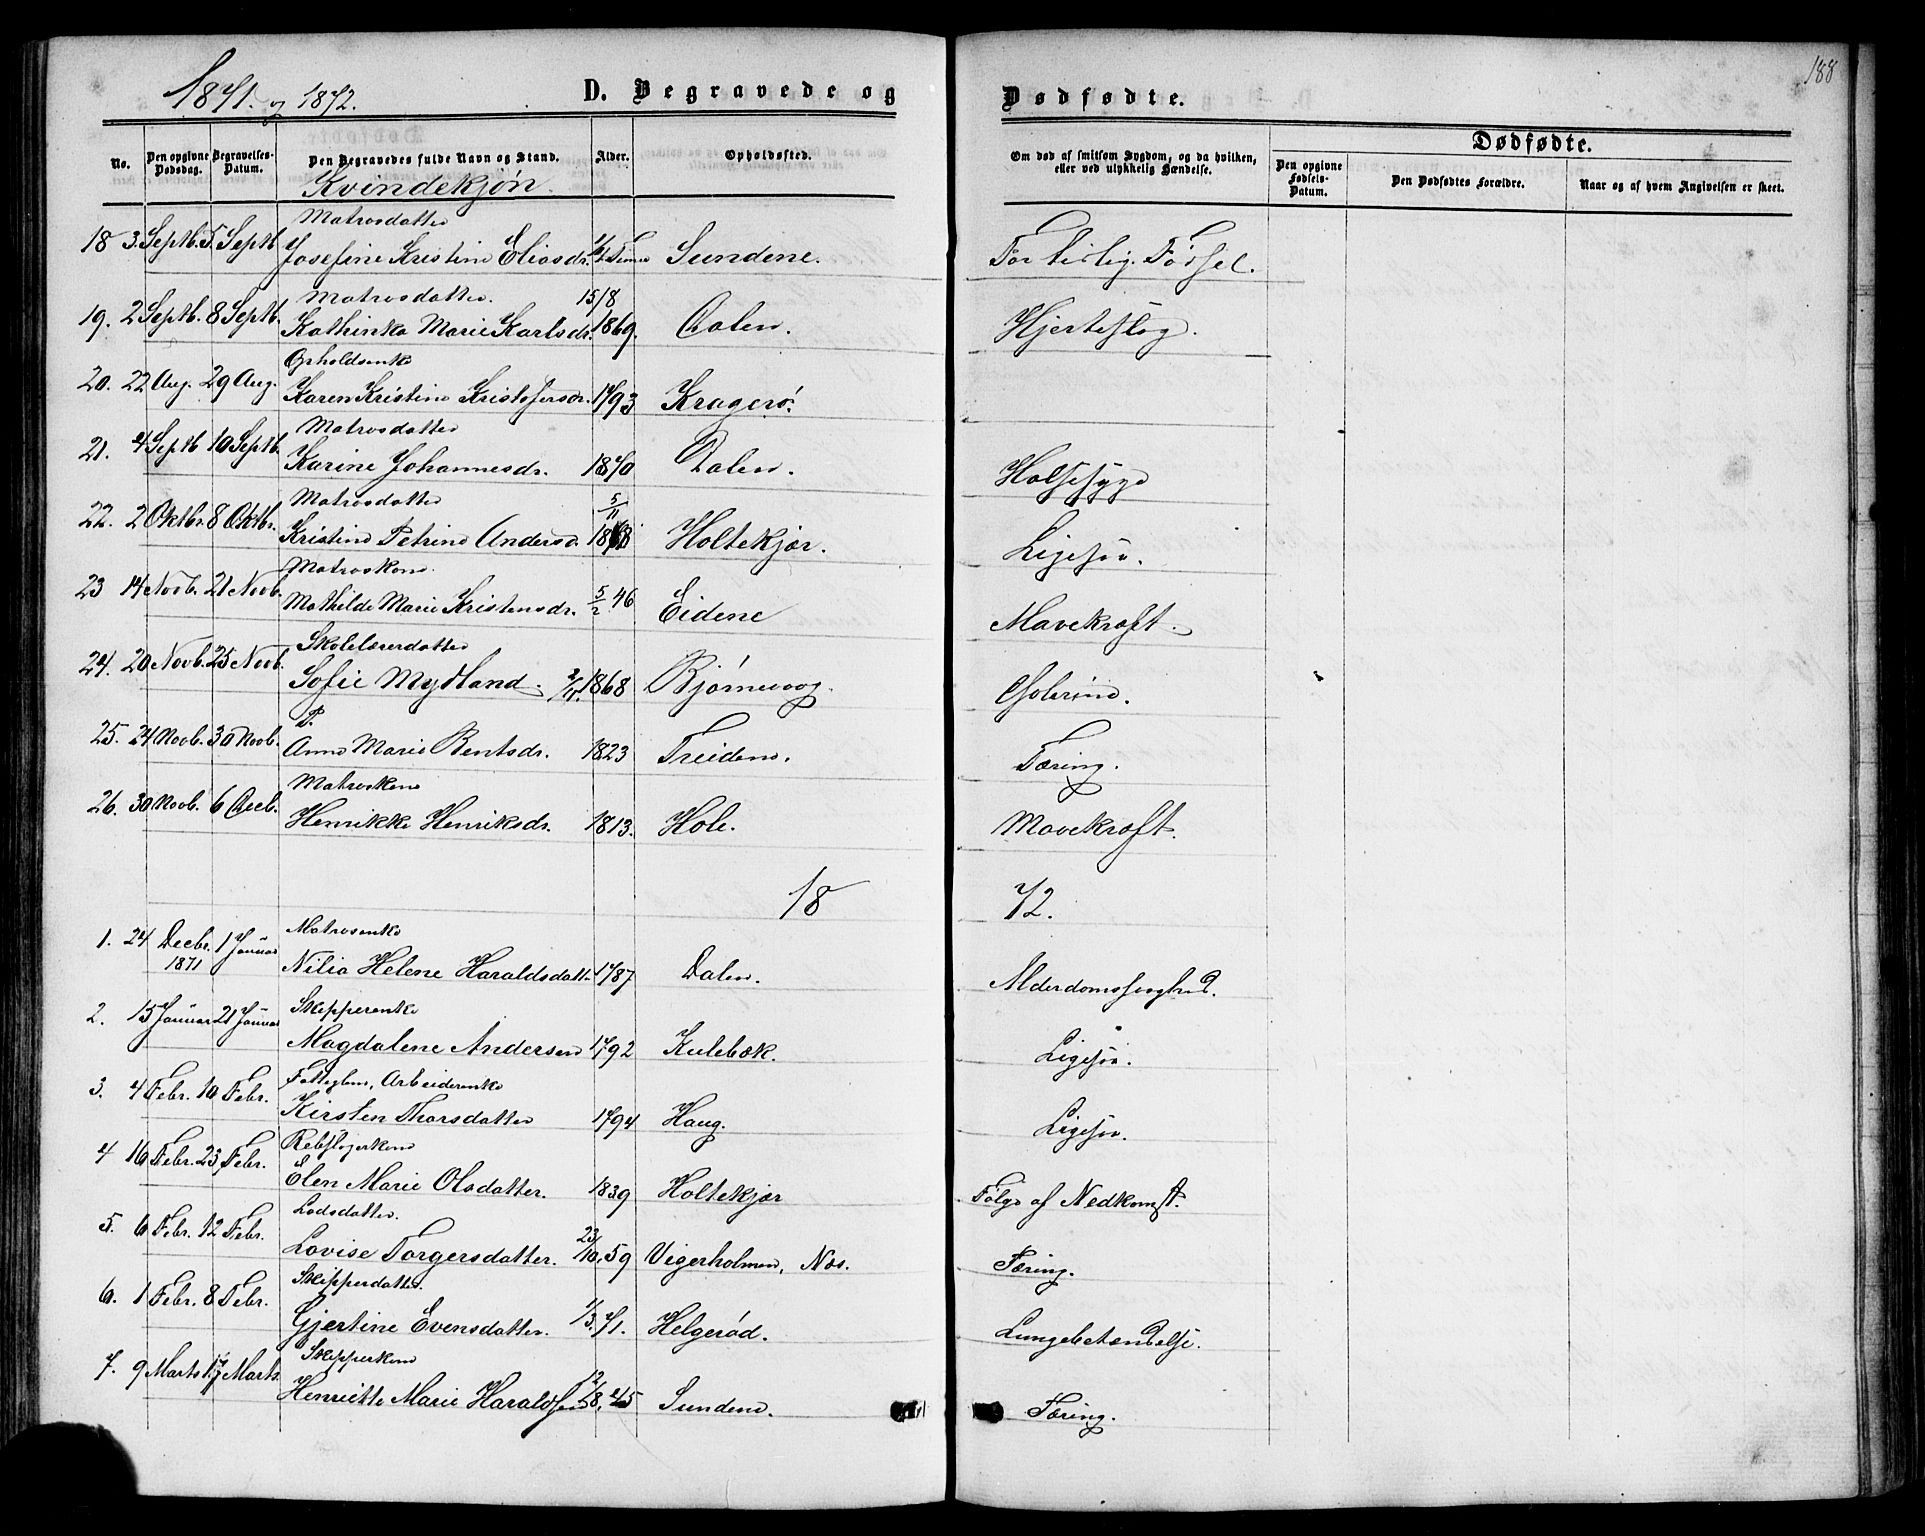 188
1871. og 1872.
D. Begravede og Dødfødte.
No. Den opgivne Dødsdag. Begravelses-Datum. Den Begravedes fulde Navn og Stand. Alder. Opholdssted. Om død af smitsom Sygdom, og da hvilken, eller ved ulykkelig Hændelse. Dødfødte.
Den opgivne Fødsels-Datum. Den Dødfødtes Forældre. Naar og af hvem Angivelsen er skeet.
Kvindekjøn.
Matrosdatter
18 3. Septb. 5 Septb. Josefine Kristine Eliasdr. Sundene. For tidlig Fødsel.
Matrosdatter. 15/8
19. 2 Septb. 8 Septb. Kathinka Marie Karlsdr. 1869. Dalen. Hjerteslag.
Opholdsenke
20. 22 Aug. 29 Aug. Karen Kristine Kristofersdr. 1793 Kragerø.
Matrosdatter
21. 4 Septb 10 Septb. Karine Johannesdr. 1870 Dalen. Halssyge
Matrosdatter 5/11
22. 2 Oktbr. 8 Oktbr. Kristine Petrine Andersd. 1868 Holtekjær. Ligesaa.
Matroskone
23 14 Novb. 21 Novb. Mathilde Marie Kristensdr. 5/2 46 Eidene Mavekræft.
Skolelærerdatter
24. 20 Novb. 25 Novb. Sofie Mydland. 1868 Bjørnevaag. Colerine.
P.
25. 24 Novb. 30 Novb. Anne Marie Bentsdr. 1823 Treidene. Tæring.
Matroskone
26. 30 Novb. 6 Decb. Henrikke Henriksdr. 1813. Hole. Mavekræft.
18 72.
Matrosenke
1. 24 Decbr. 1871 1 Januar Nilia Helene Haraldsdatter 1787 Dalen. Alderdomssvaghed.
Skipperenke
2. 15 Januar 21 Januar Magdalene Andersen 1792 Kulebæk. Ligesaa.
Fattiglem, Arbeiderenke
3. 4 Febr. 10 Febr. Kirsten Thorsdatter 1794 Haug. Ligesaa.
Rebslagerkone
4 16 Febr. 23 Febr. Elen Marie Olsdatter. 1839 Holtekjær Følge af Nedkomst.
Lodsdatter.
5. 6 Febr. 12 Febr. Lovise Torgersdatter. 23/10. 59 Vigerholmen, Nes. Tæring.
Skipperdatter.
6. 1 Febr. 8 Febr. Gjertine Evensdatter. 1/3. 71. Helgerød. Lungebetændelse.
Skipperkone
7. 9 Marts 17 Marts Henriette Marie Haraldsen 12/8. 45 Sundene. Tæring.